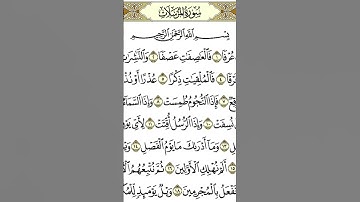 سُورَةُ المُرْسَلَات
بِسْمِ اللَّهِ الرَّحْمَٰنِ الرَّحِيمِ
عُرْفًا ١ فَالْعَاصِفَاتِ عَصْفًا ٢ وَالنَّاشِرَاتِ
فَالْمُلْقِيَاتِ ذِكْرًا ٥ عُذْرًا أَوْ
فَإِذَا النُّجُومُ طُمِسَتْ ٨ وَإِذَا السَّمَاءُ
نُسِفَتْ ١٠ وَإِذَا الرُّسُلُ أُقِّتَتْ ١١ لِأَيِّ
وَمَا أَدْرَاكَ مَا يَوْمُ الْفَصْلِ ١٤
أَلَمْ نُهْلِكِ الْأَوَّلِينَ ١٦ ثُمَّ نُتْبِعُهُمُ
نَفْعَلُ بِالْمُجْرِمِينَ ١٨ وَيْلٌ يَوْمَئِذٍ